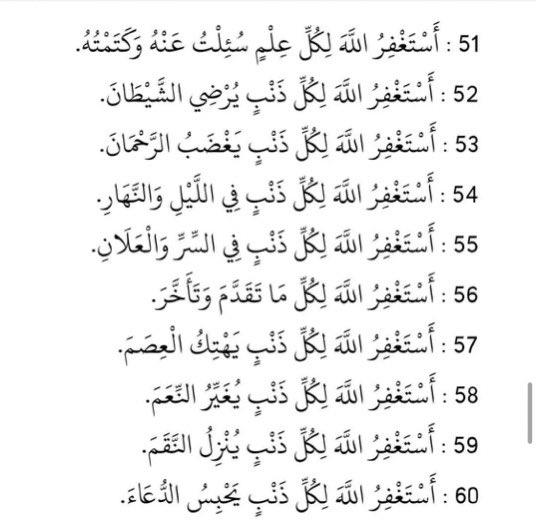 51 : أَسْتَغْفِرُ اللَّهَ لِكُلِّ عِلْمٍ سُئِلْتُ عَنْهُ وَكَتَمْتُهُ.
52 : أَسْتَغْفِرُ اللَّهَ لِكُلِّ ذَنْبٍ يُرْضِي الشَّيْطَانَ.
53 : أَسْتَغْفِرُ اللَّهَ لِكُلِّ ذَنْبٍ يَغْضَبُ الرَّحْمَانَ.
54 : أَسْتَغْفِرُ اللَّهَ لِكُلِّ ذَنْبٍ فِي اللَّيْلِ وَالنَّهَارِ.
55 : أَسْتَغْفِرُ اللَّهَ لِكُلِّ ذَنْبٍ فِي السِّرِّ وَالْعَلَانِ.
56 : أَسْتَغْفِرُ اللَّهَ لِكُلِّ مَا تَقَدَّمَ وَتَأَخَّرَ.
57 : أَسْتَغْفِرُ اللَّهَ لِكُلِّ ذَنْبٍ يَهْتِكُ الْعِصَمَ.
58 : أَسْتَغْفِرُ اللَّهَ لِكُلِّ ذَنْبٍ يُغَيِّرُ النِّعَمَ.
59 : أَسْتَغْفِرُ اللَّهَ لِكُلِّ ذَنْبٍ يُنْزِلُ النَّقَمَ.
60 : أَسْتَغْفِرُ اللَّهَ لِكُلِّ ذَنْبٍ يَحْبِسُ الدُّعَاءَ.